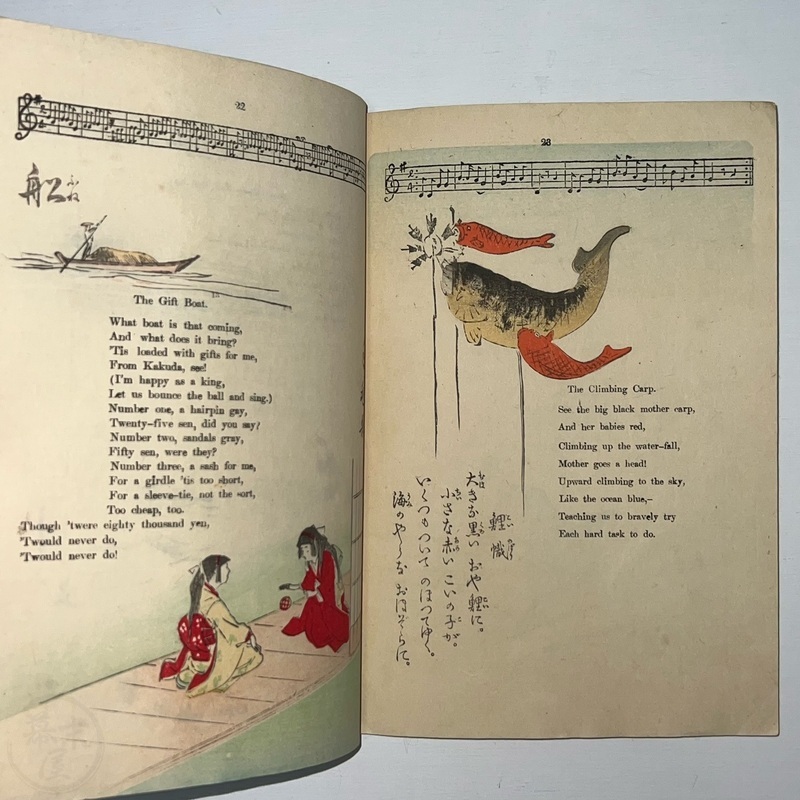 22
船
ふね
The Gift Boat.
What boat is that coming,
And what does it bring?
'Tis loaded with gifts for me,
From Kakuda, see!
(I'm happy as a king,
Let us bounce the ball and sing.)
Number one, a hairpin gay,
Twenty-five sen, did you say?
Number two, sandals gray,
Fifty sen, were they?
Number three, a sash for me,
For a girdle 'tis too short,
For a sleeve-tie, not the sort,
Too cheap, too.
Though 'twere eighty thousand yen,
'Twould never do,
'Twould never do!
23
The Climbing Carp.
See the big black mother carp,
And her babies red,
Climbing up the water-fall,
Mother goes a head!
Upward climbing to the sky,
Like the ocean blue,–
Teaching us to bravely try
Each hard task to do.
鯉幟
大きな黒い おや鯉に。
小さな赤い こいの子が。
いくつもついて のぼつてゆく。
海のやうな おほぞらに。